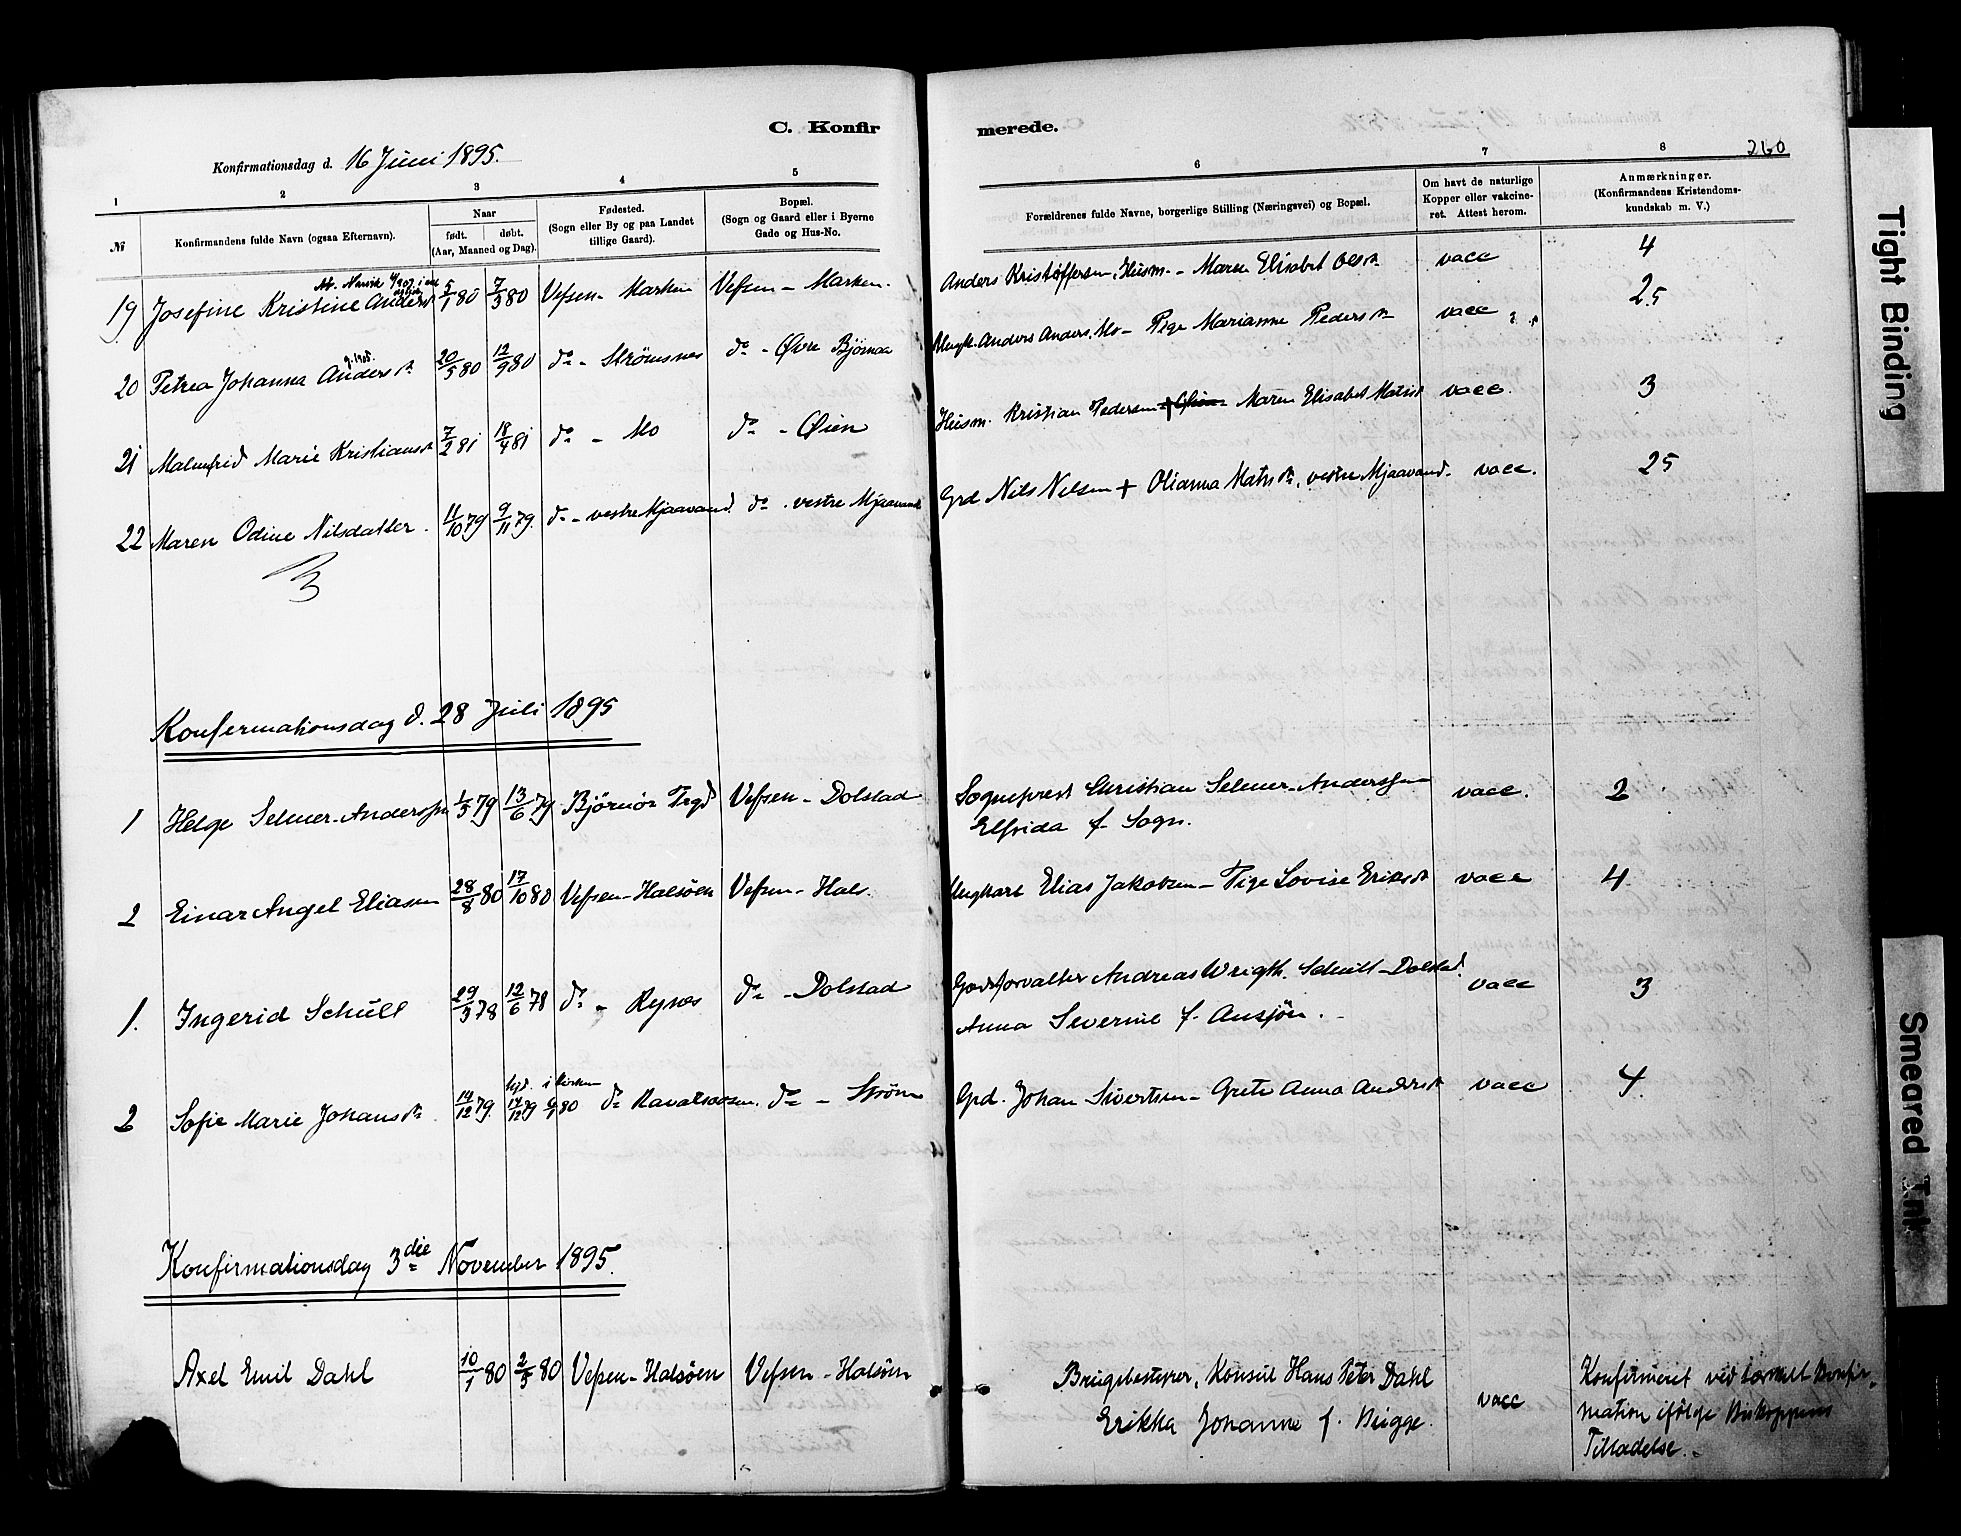 C. Konfirmerede.
260
Konfirmationsdag d. 16 Juni 1895.
1 2 3 4 5 6 7 8
№
Konfirmandens fulde Navn (ogsaa Efternavn).
Naar
født. døbt.
(Aar, Maaned og Dag).
Fødested.
(Sogn eller By og paa Landet
tillige Gaard).
Bopæl.
(Sogn og Gaard eller i Byerne
Gade og Hus-No.
Forældrenes fulde Navne, borgerlige Stilling (Næringsvei) og Bopæl.
Om havt de naturlige
Kopper eller vakcine-
ret. Attest herom.
Anmærkninger.
(Konfirmandens Kristendoms-
kundskab m. V.)
19 Josefine Kristine Andersd 5/1 80 7/3 80 Vefsen - Marken Vefsen - Marken. Anders Kristoffersen, Husm. - Maren Elisabet Olsd vacc 4
20 Petrea Johanna Andersd 20/5 80 12/9 80 do - Strømsnes do - Øvre Bjørnaa Ungk. Anders Anders, Mo - Pige Marianne Pedersd vacc 25
21 Malenfrid Marie Kristiansd 7/2 81 18/4 81 do - Mo do - Øien Husm. Kristian Pedersen Maren Elisabet Matisd vacc. 3
22 Maren Odine Nilsdatter. 11/10 79 9/11 79. do - vestre Mjaavand. do. vestre Mjaavand Grd Nils Nilsen + Olianna Matisd, vestre Mjaavand. vacc. 25
Konfermationsdag d. 28 Juli 1895
1 Helge Selmer-Anderssen 1/5 79 13/6 79 Bjørnør Prgd Vefsen - Dolstad Sogneprest Christian Selmer-Anderssen vacc. 2
Elfrida f. Sogn.
2 Einar Angel Eliasen 28/8 80 17/10 80 Vefsen - Halsøen Vefsen - Hals. Ungkarl Elias Jakobsen - Pige Lovise Eriksd vacc 4
1. Ingerid Schult 29/3 78 12/6 78 do - Rynes do - Dolstad Godsforvalter Andreas Wrigth. Schult - Dolstad. vacc 3
Anna Severine f. Ausjøn.
2 Sofie Marie Johansd. 14/12 79. 14/12 79 6/1 80 do do - Strøm Grd. Johan Sivertsen - Grete Anna Andersd vacc 4.
i kirken
Konfirmationsdag 3die November 1895.
Axel Emil Dahl 10/1 80 2/5 80 Vefsen - Halsøen Vefsen - Halsøen Brugsbestyrer, Konsul Hans Peter Dahl vacc
Erikka Johanne f. Bugge.
Konfirmeret ved særskilt Konfir-
mation ifølge Biskoppens
Tilladelse.
Tight Binding
Smeared Ink